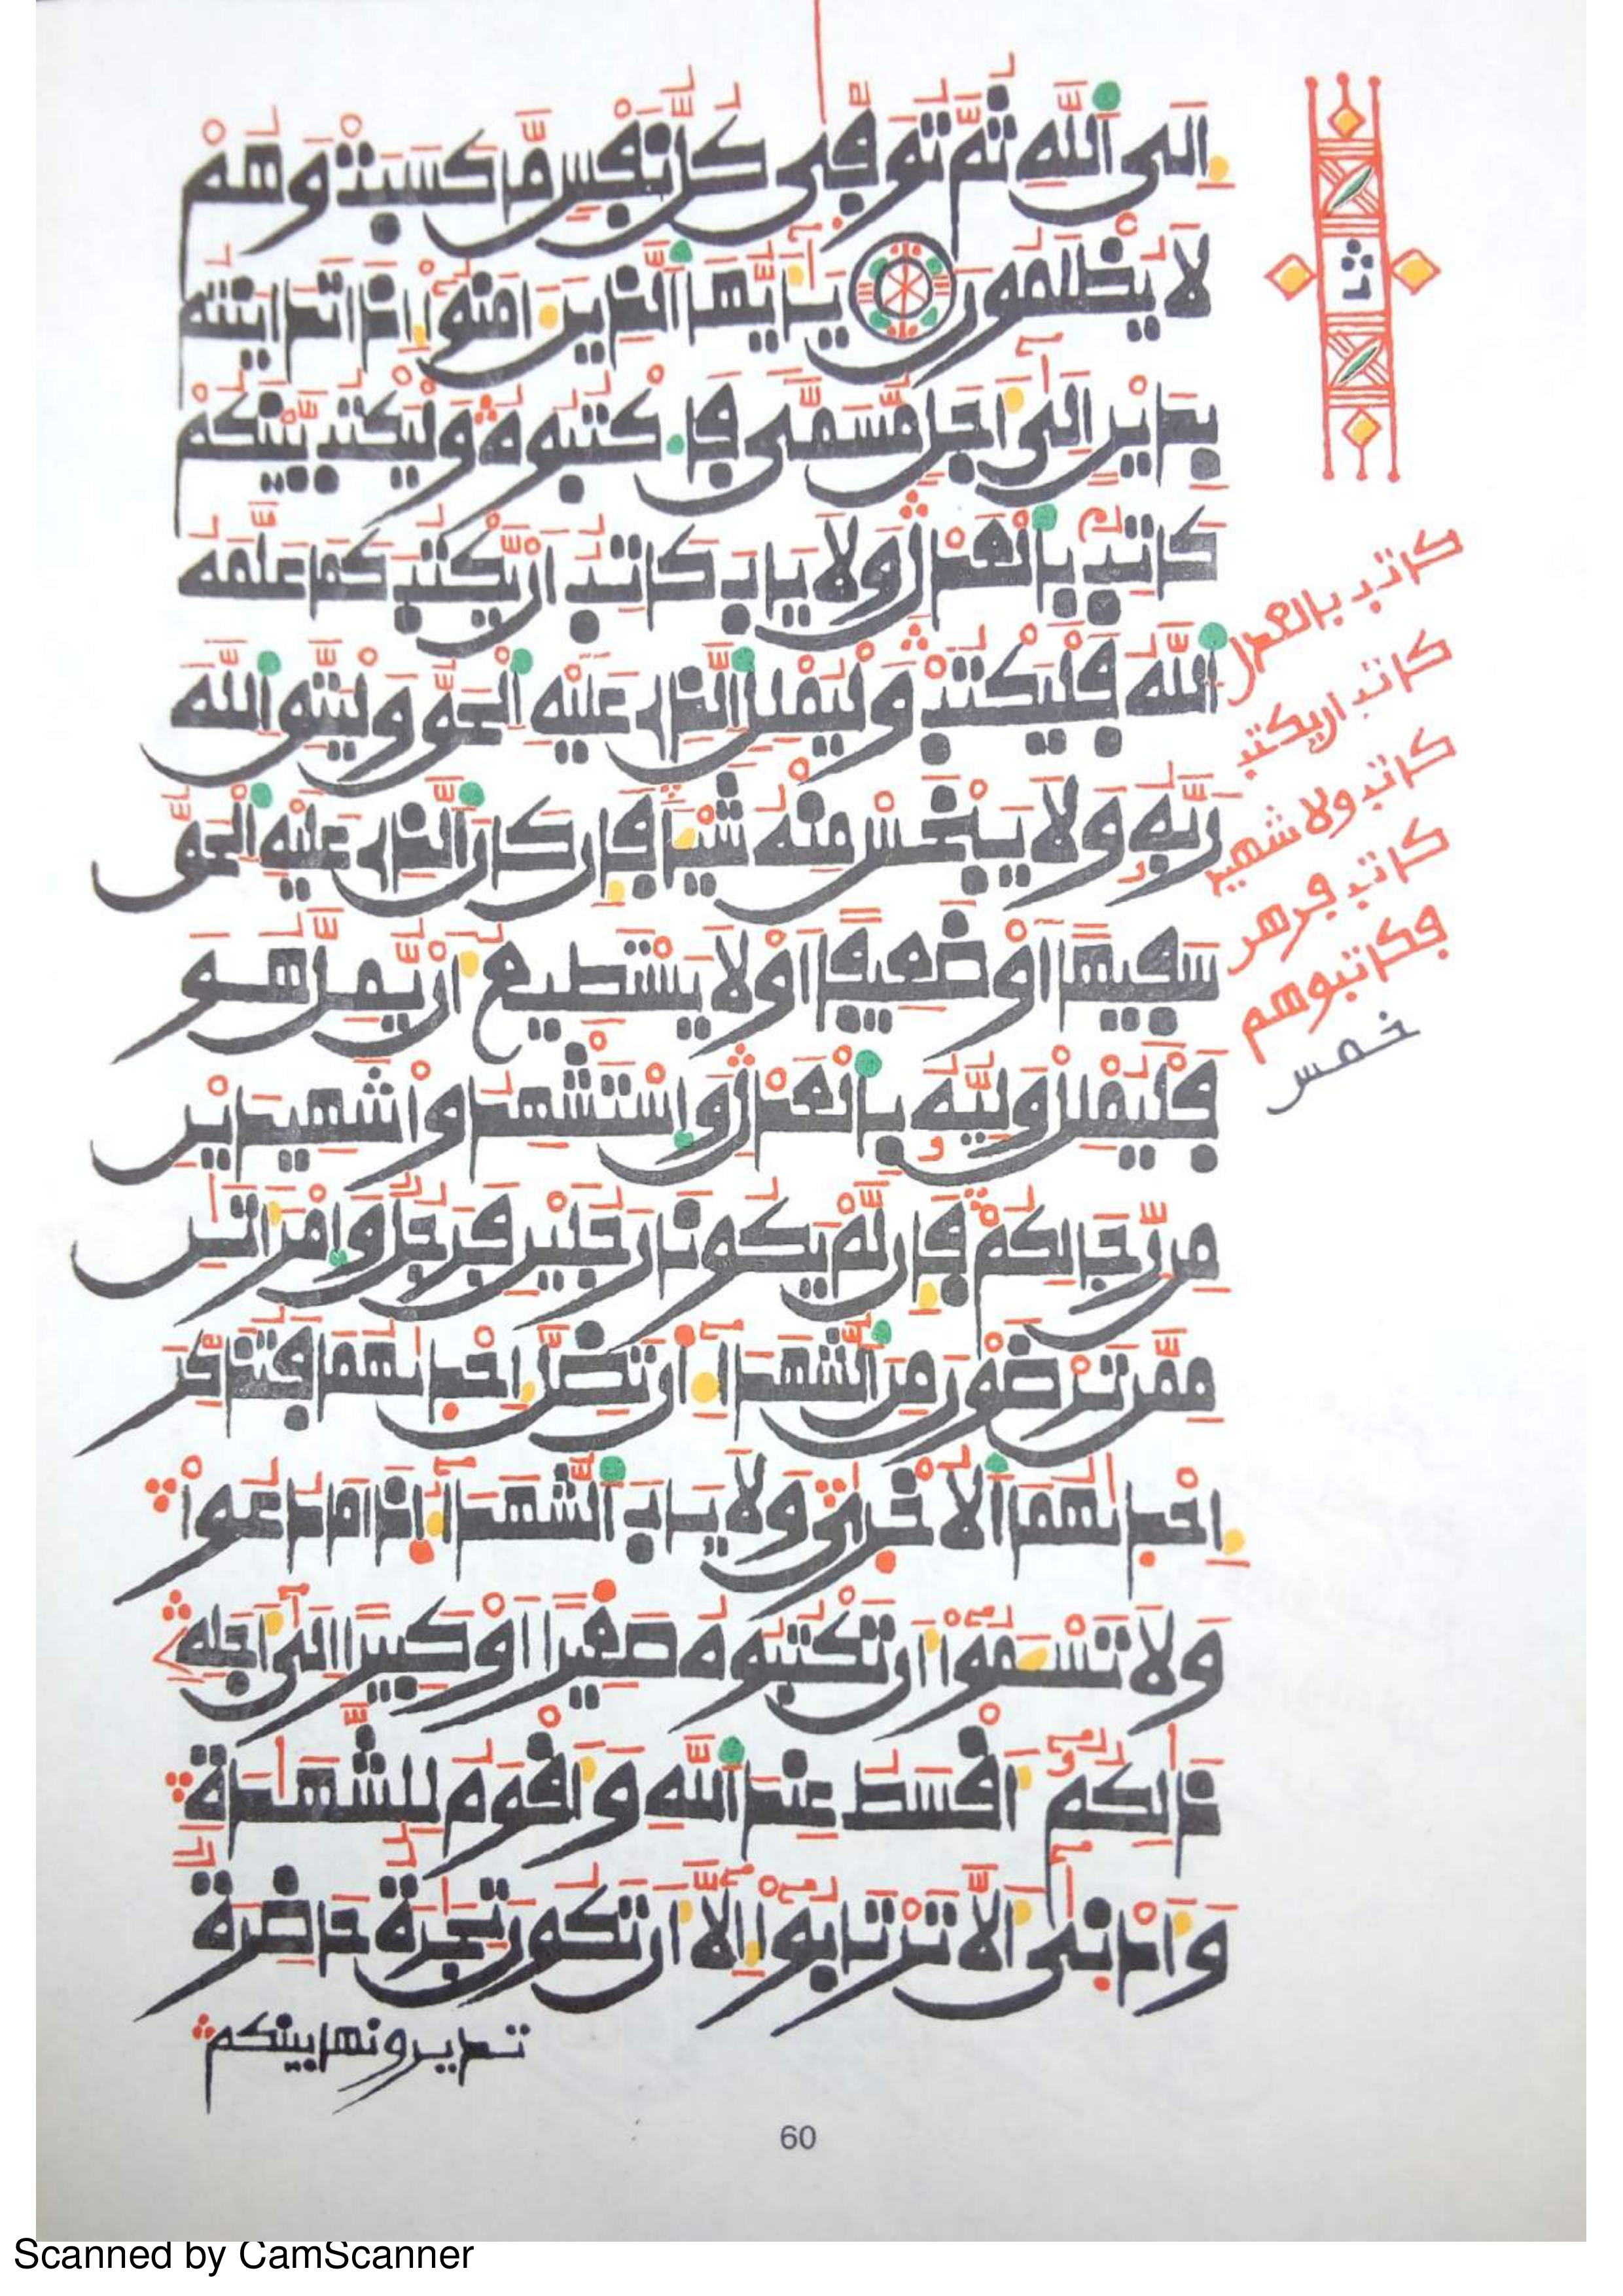 إِلَى ٱللَّهِ ثُمَّ تُوَفَّىٰ كُلُّ نَفْسٍ مَّا كَسَبَتْ وَهُمْ
لَا يُظْلَمُونَ يَٰٓأَيُّهَا ٱلَّذِينَ ءَامَنُوٓا۟ إِذَا تَدَايَنتُم
بِدَيْنٍ إِلَىٰٓ أَجَلٍ مُّسَمًّى فَٱكْتُبُوهُ وَلْيَكْتُب بَّيْنَكُمْ
كَاتِبٌۢ بِٱلْعَدْلِ وَلَا يَابَ كَاتِبٌ أَن يَّكْتُبَ كَمَا عَلَّمَهُ
ٱللَّهُ فَلْيَكْتُبْ وَلْيُمْلِلِ ٱلَّذِى عَلَيْهِ ٱلْحَقُّ وَلْيَتَّقِ ٱللَّهَ
رَبَّهُۥ وَلَا يَبْخَسْ مِنْهُ شَيْـًٔا فَإِن كَانَ ٱلَّذِى عَلَيْهِ ٱلْحَقُّ
سَفِيهًا أَوْ ضَعِيفًا أَوْ لَا يَسْتَطِيعُ أَن يُّمِلَّ هُوَ
فَلْيُمْلِلْ وَلِيُّهُۥ بِٱلْعَدْلِ وَٱسْتَشْهِدُوا۟ شَهِيدَيْنِ
مِن رِّجَالِكُمْ فَإِن لَّمْ يَكُونَا رَجُلَيْنِ فَرَجُلٌ وَٱمْرَأَتَٰنِ
مِمَّن تَرْضَوْنَ مِنَ ٱلشُّهَدَآءِ أَن تَضِلَّ إِحْدَىٰهُمَا فَتُذَكِّرَ
إِحْدَىٰهُمَا ٱلْأُخْرَىٰ وَلَا يَابَ ٱلشُّهَدَآءُ إِذَا مَا دُعُوا۟
وَلَا تَسْـَٔمُوٓا۟ أَن تَكْتُبُوهُ صَغِيرًا أَوْ كَبِيرًا إِلَىٰٓ أَجَلِهِۦ
ذَٰلِكُمُۥٓ أَقْسَطُ عِندَ ٱللَّهِ وَأَقْوَمُ لِلشَّهَٰدَةِ
وَأَدْنَىٰٓ أَلَّا تَرْتَابُوٓا۟ إِلَّآ أَن تَكُونَ تِجَٰرَةٌ حَاضِرَةٌ
تديرونها بينكم
ث
كاتب بالعدل
كاتب ان يكتب
كاتب ولا شهيد
كاتب فرهن
فكاتبوهم
خمس
60
Scanned by CamScanner